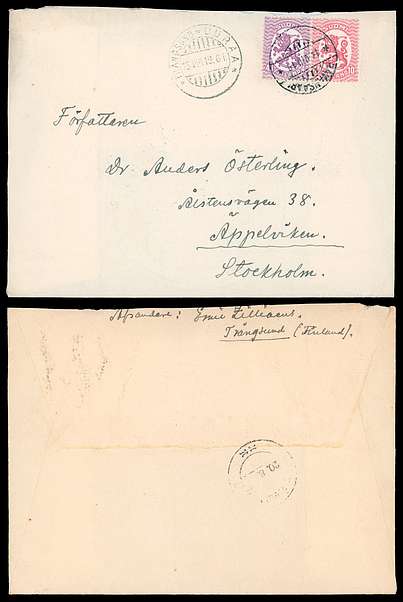 Författaren
Dr Anders Österling.
Ålstensvägen 38.
Äppelviken.
Stockholm.
Afsändare: Emil Zilliacus.
Trångsund (Finland).
20. 8.